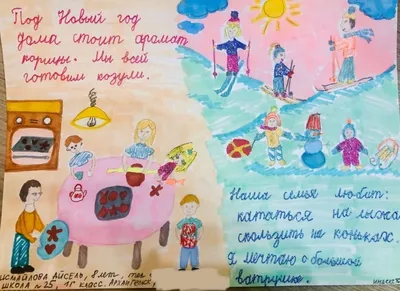 Под Новый год
дома стоит аромат
корицы. Мы всей
готовим козули.
Наша семья любит:
кататься на лыжах
скользить на коньках.
Я мечтаю о большой
ватрушке.
ИСМАЙЛОВА АЙСЕЛЬ, 8 лет,
ШКОЛА №25, 1Г класс. АРХАНГЕЛЬСК,